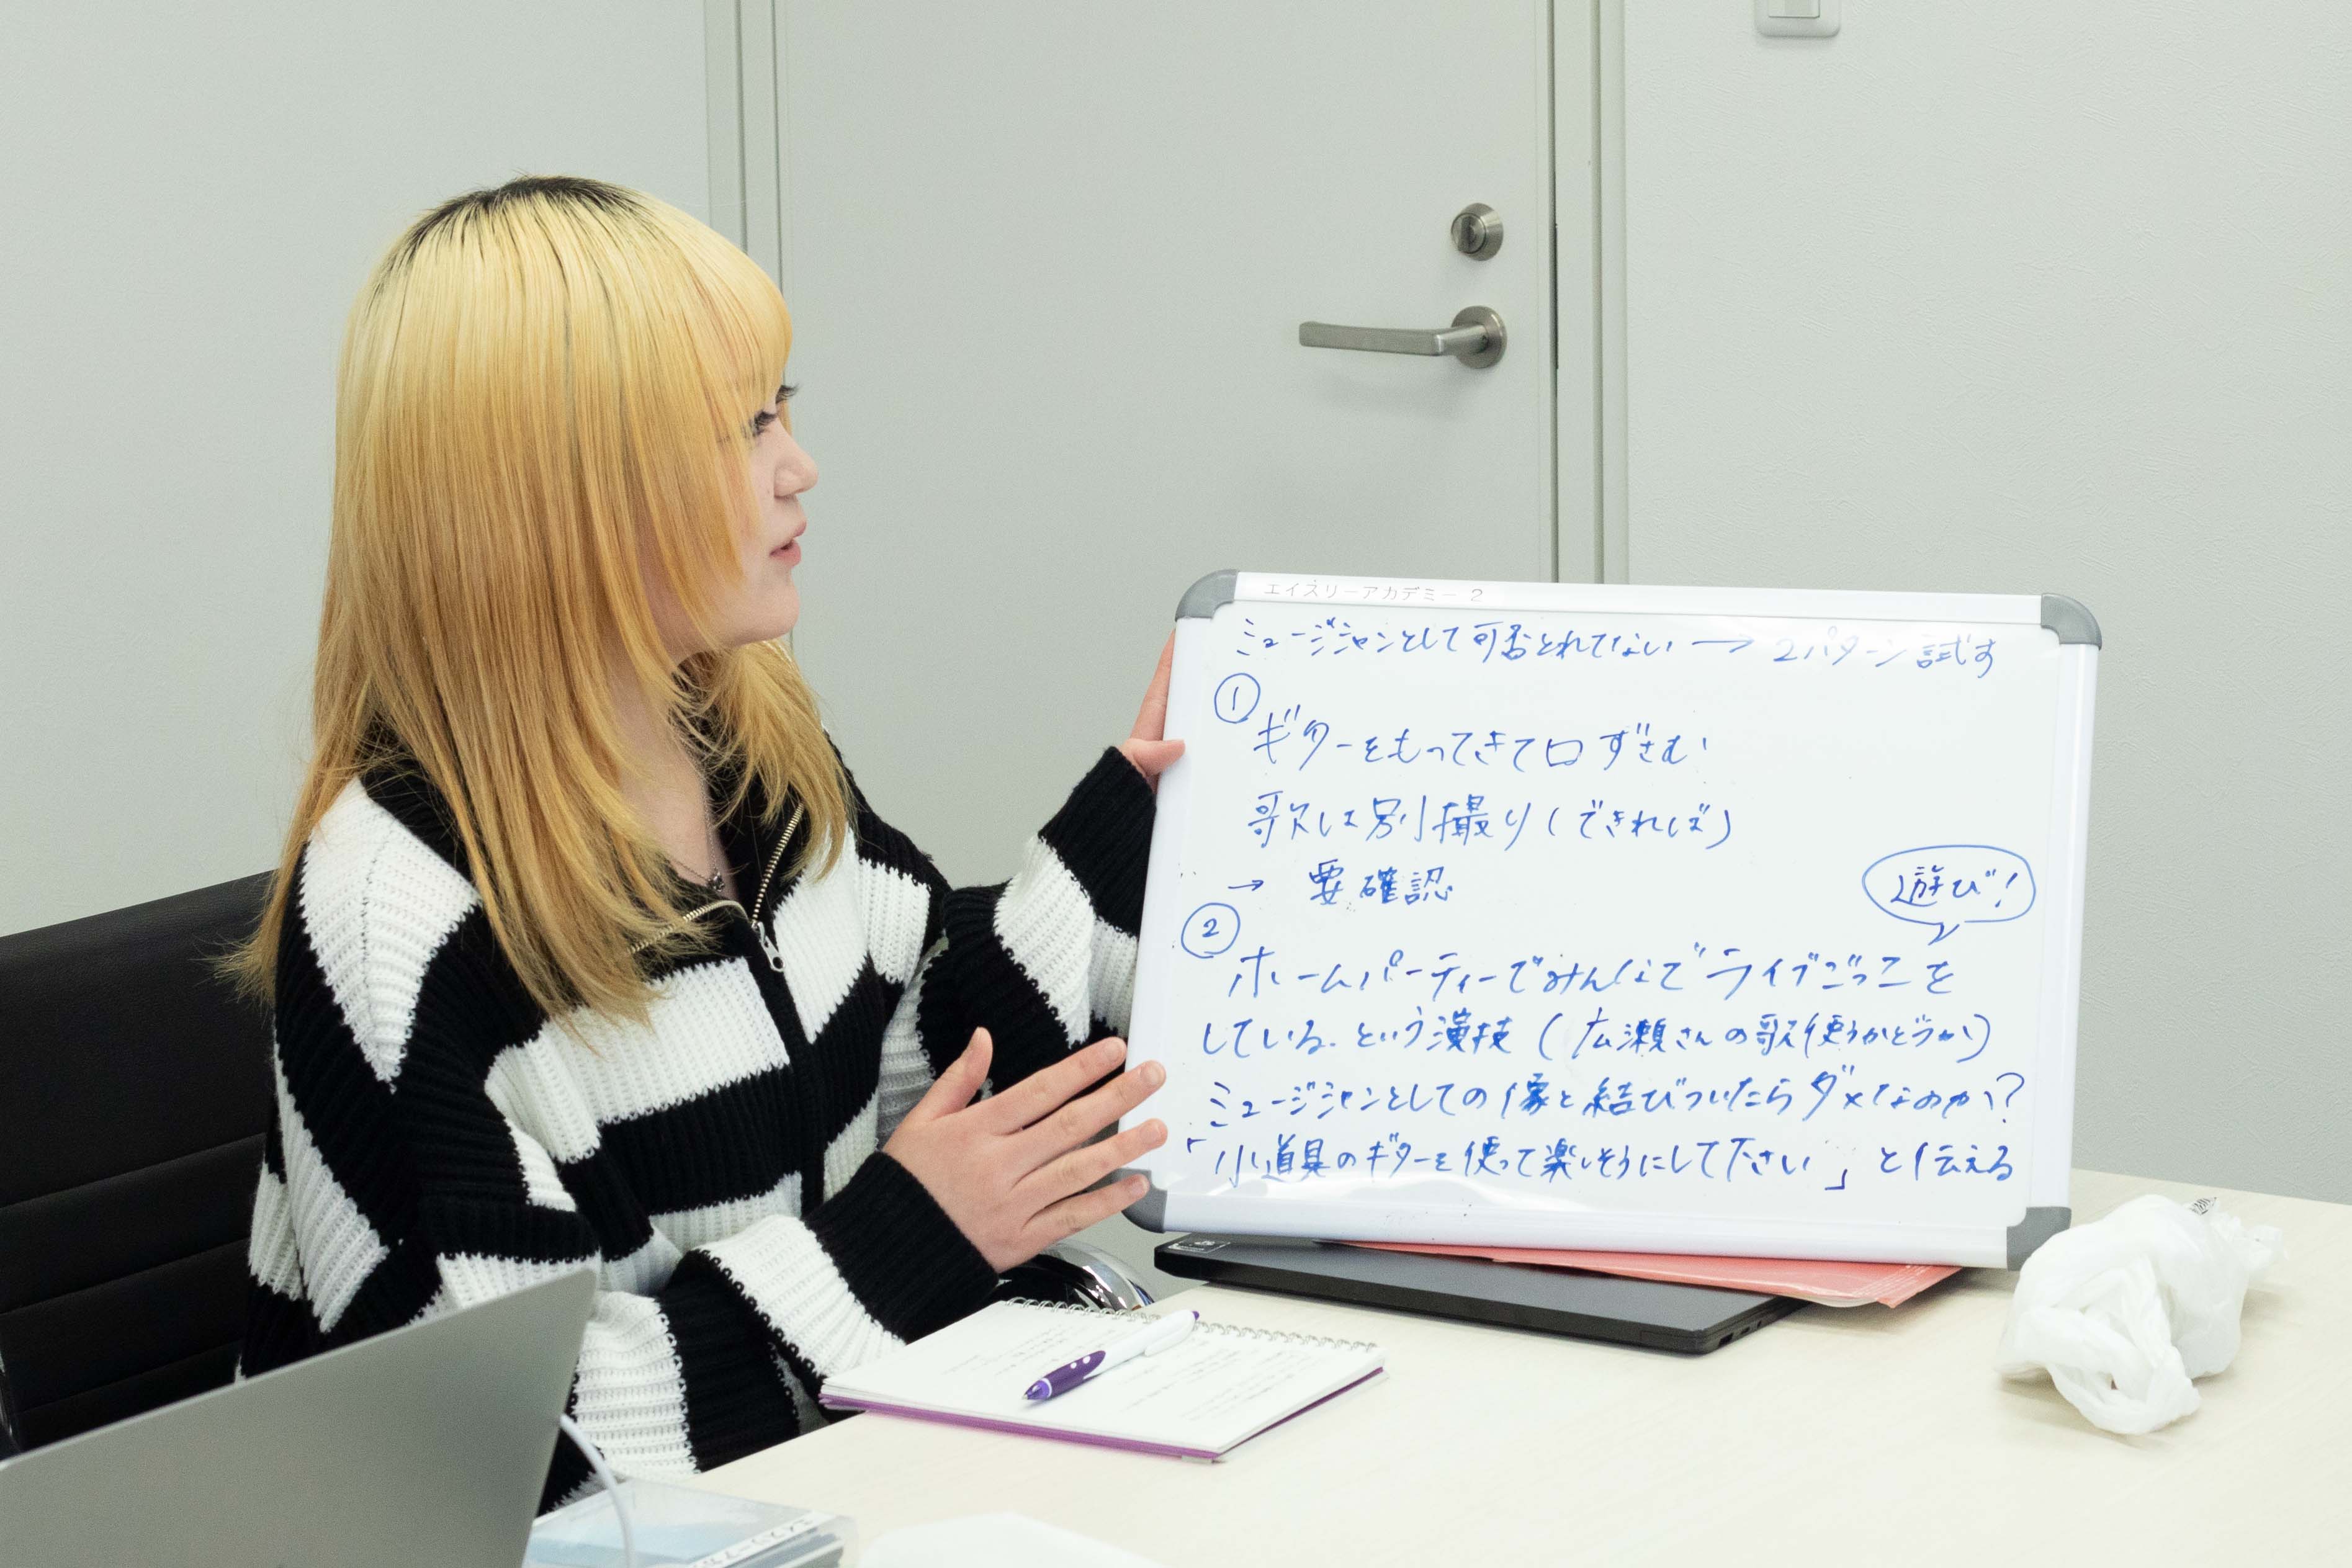 エイスリーアカデミー 2
ミュージシャンとして可否とれてない → 2パターン試す
①
ギターをもってきて口ずさむ
歌は別撮り(できれば)
→ 要確認
遊び!
②
ホームパーティーでみんなでライブごっこを
している.という演技(広瀬さんの歌使うかどうか)
ミュージシャンとしての像と結びついたらダメなのか?
「小道具のギターを使って楽しそうにして下さい」と伝える